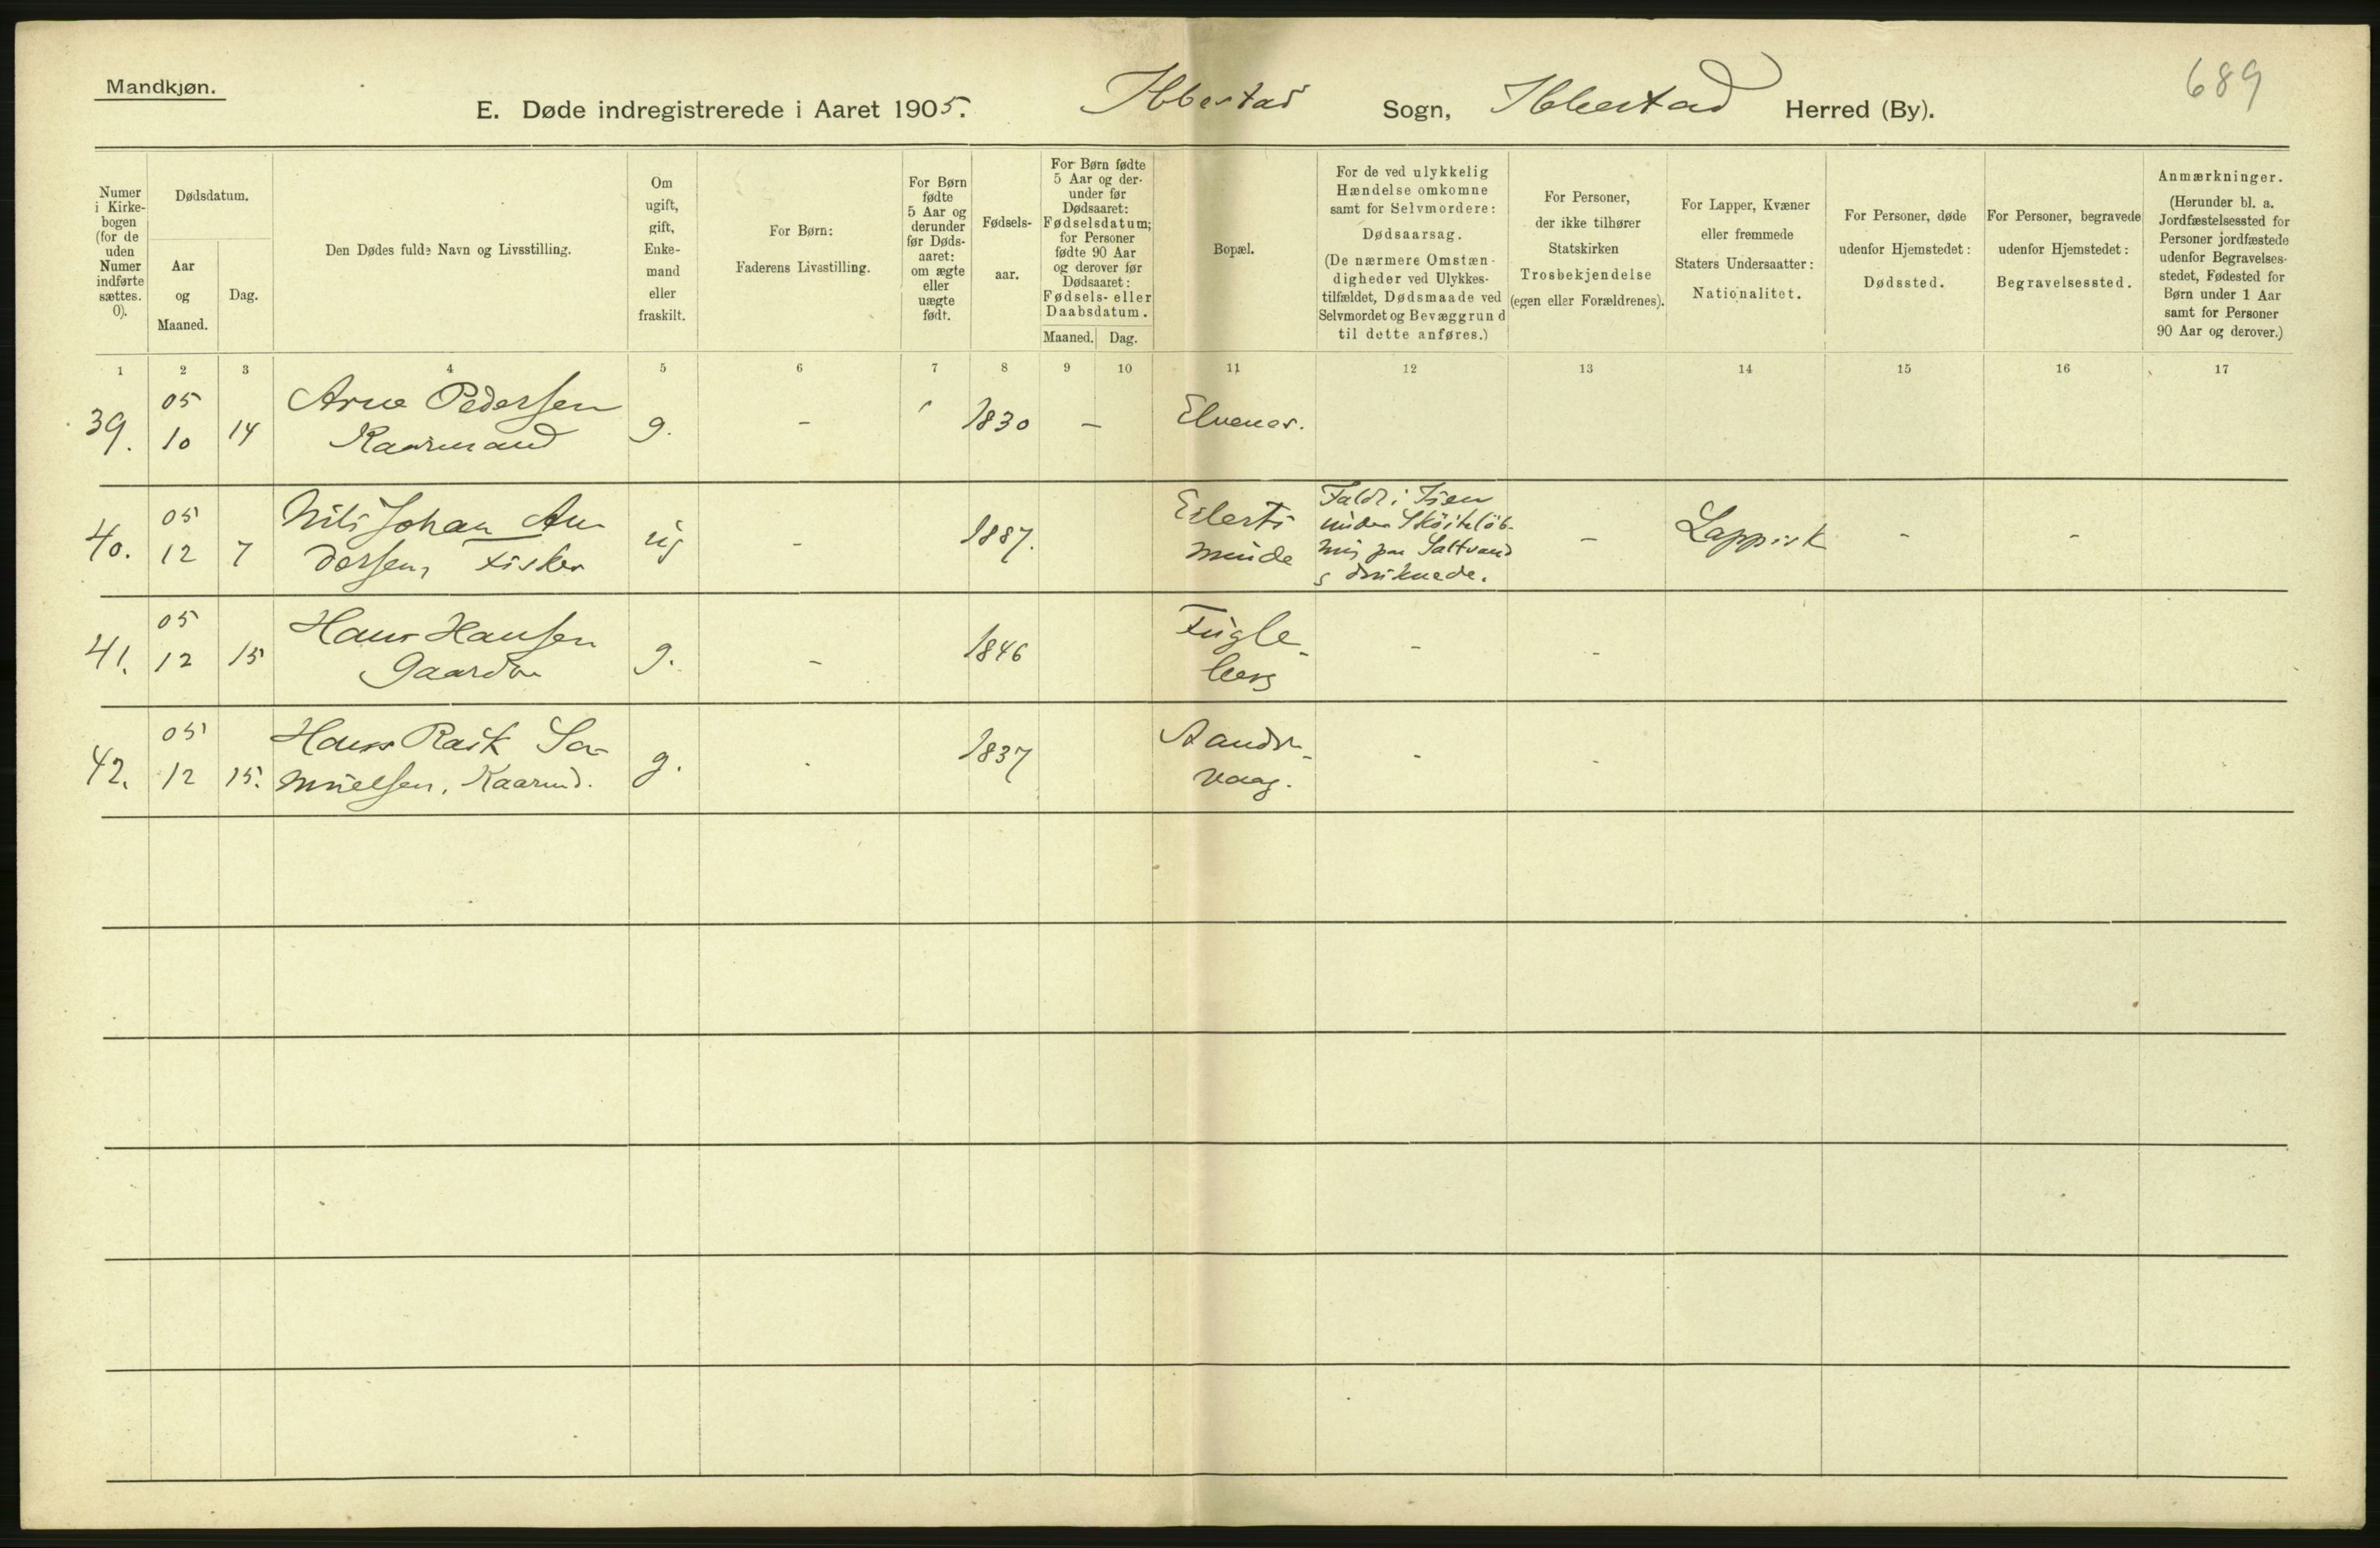 Mandkjøn.
E. Døde indregistrerede i Aaret 1905. Ibbestad Sogn, Ibbestad Herred (By).
689
Numer i Kirke-bogen (for de uden Numer indførte sættes. 0).
Dødsdatum.
Aar og Maaned.
Dag.
Den Dødes fulde Navn og Livsstilling.
Om ugift, gift, Enke-mand eller fraskilt.
For Børn: Faderens Livsstilling.
For Børn fødte 5 Aar og derunder før Døds-aaret: om ægte eller uægte født.
Fødsels-aar.
For Børn fødte 5 Aar og der-under før Dødsaaret: Fødselsdatum; for Personer fødte 90 Aar og derover før Dødsaaret: Fødsels- eller Daabsdatum.
Maaned. Dag.
Bopæl.
For de ved ulykkelig Hændelse omkomne samt for Selvmordere: Dødsaarsag. (De nærmere Omstæn-digheder ved Ulykkes-tilfældet, Dødsmaade ved Selvmordet og Bevæggrund til dette anføres.)
For Personer, der ikke tilhører Statskirken Trosbekjendelse (egen eller Forældrenes).
For Lapper, Kvæner eller fremmede Staters Undersaatter: Nationalitet.
For Personer, døde udenfor Hjemstedet: Dødssted.
For Personer, begravede udenfor Hjemstedet: Begravelsessted.
Anmærkninger. (Herunder bl. a. Jordfæstelsessted for Personer jordfæstede udenfor Begravelses-stedet, Fødested for Børn under 1 Aar samt for Personer 90 Aar og derover.)
1 2 3 4 5 6 7 8 9 10 11 12 13 14 15 16 17
39. 05 10 14 Arne Pedersen Kaarmand g. - 1830 - Elvenes.
40. 05 12 7 Nils Johan Andersen, Fisker ug - 1887. Eilertsminde Faldt i Isen under Skøiteløbning paa Saltvand & druknede. - Lappisk - -
41. 05 12 15 Hans Hansen Gaardbr g. - 1846 Fugleberg - -
42. 05 12 15. Hans Rask Samuelsen, Kaarmd. g. - 1837 Aandrvaag. - -